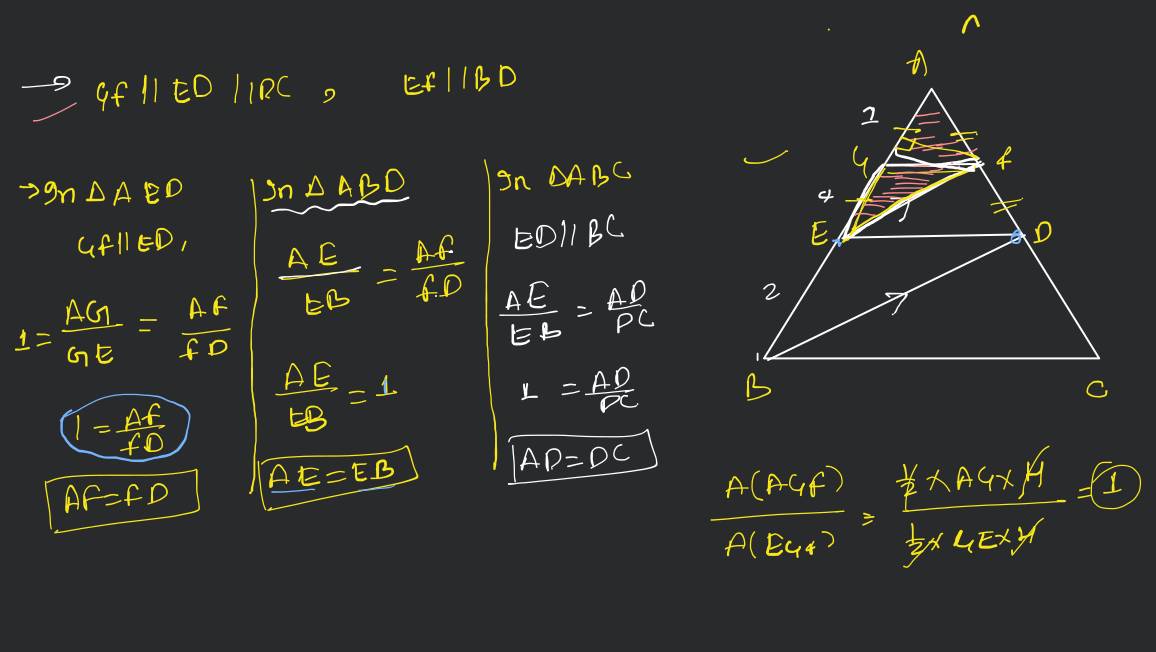 → GF || ED || BC , EF || BD
→ In Δ AED
GF || ED,
1 = AG/GE = AF/FD
1 = AF/FD
AF = FD
In Δ ABD
AE/EB = AF/FD
AE/EB = 1
AE = EB
In ΔABC
ED || BC
AE/EB = AD/DC
1 = AD/DC
AD = DC
A
G
F
E
D
2
B
C
A(AGF)/A(EGF) = ½ × AG × H / ½ × GE × H = 1